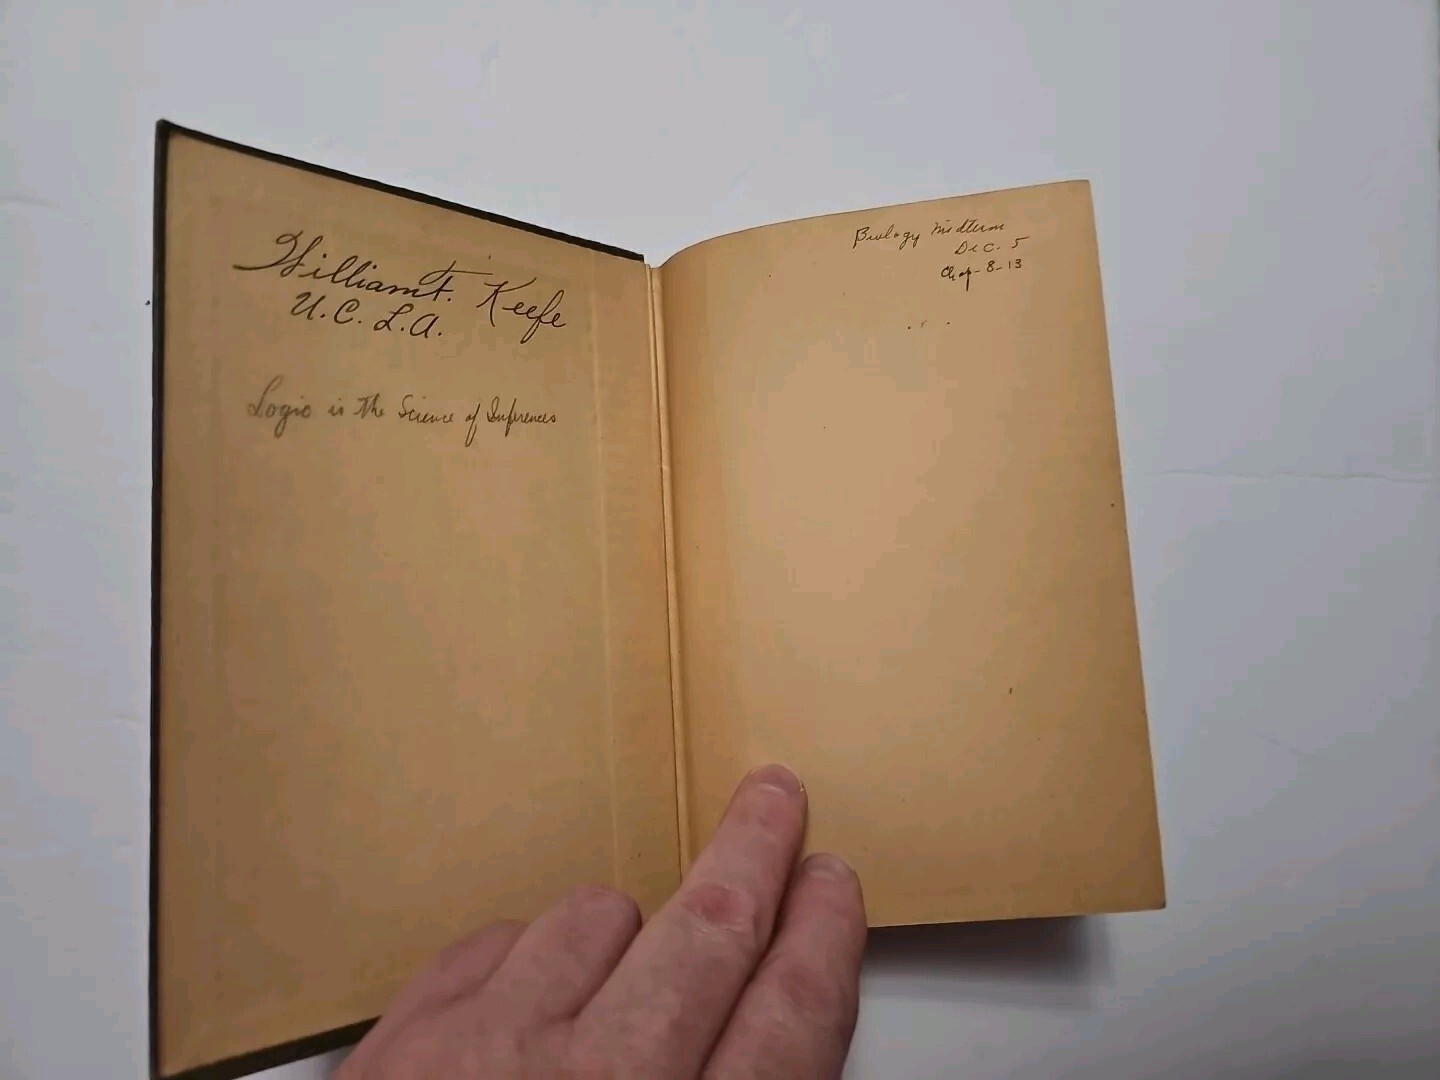 William F. Keefe
U.C.L.A.
Logic is the Science of Inferences
Biology Midterm
Dec. 5
Chap- 8-13